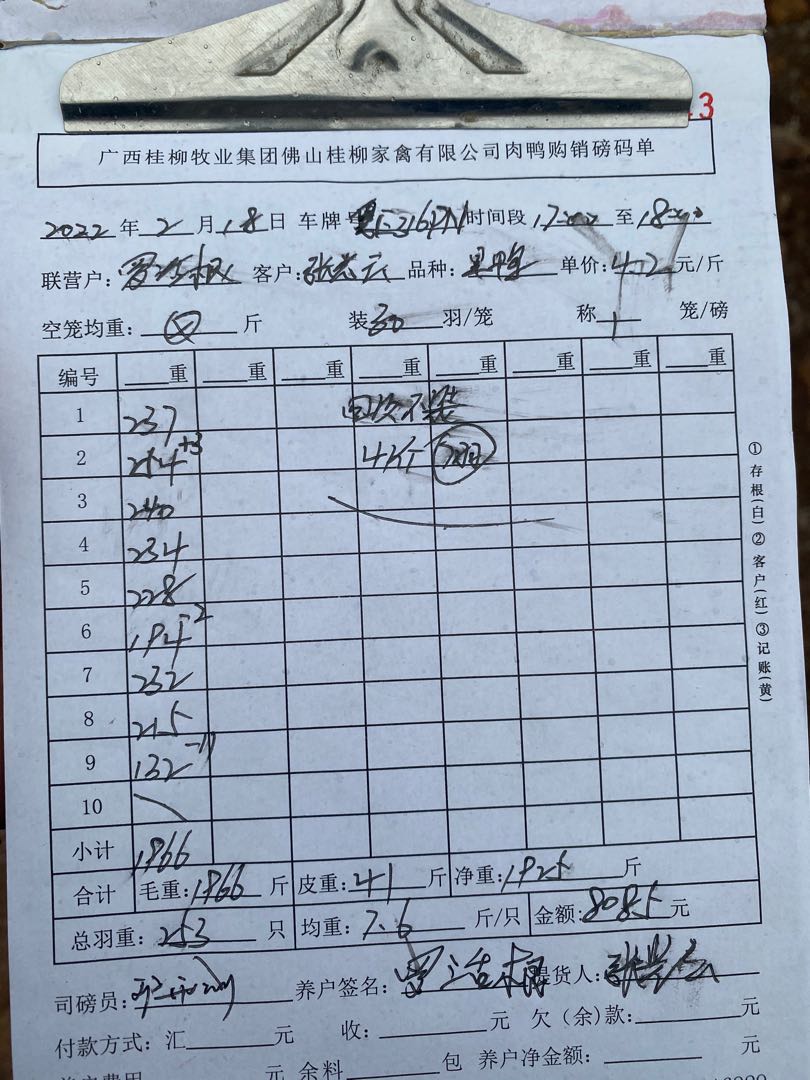 3
广西桂柳牧业集团佛山桂柳家禽有限公司肉鸭购销磅码单
2022 年 2 月 18 日 车牌号 时间段 17:00 至 18:00
联营户: 客户: 品种: 单价: 4.2 元/斤
空笼均重: 斤 装 30 羽/笼 称 1 笼/磅
编号 重 重 重 重 重 重 重 重
1 237
2 +3 4个
3 240
4 234
5 228
6 194 -2
7 232
8 215
9 132 -11
10
小计 1966
合计 毛重: 1966 斤 皮重: 41 斤 净重: 1925 斤
总羽重: 253 只 均重: 7.6 斤/只 金额: 8085 元
司磅员: 养户签名: 提货人:
付款方式: 汇 元 收: 元 欠(余)款: 元
元 余料 包 养户净金额: 元
①存根(白)②客户(红)③记账(黄)